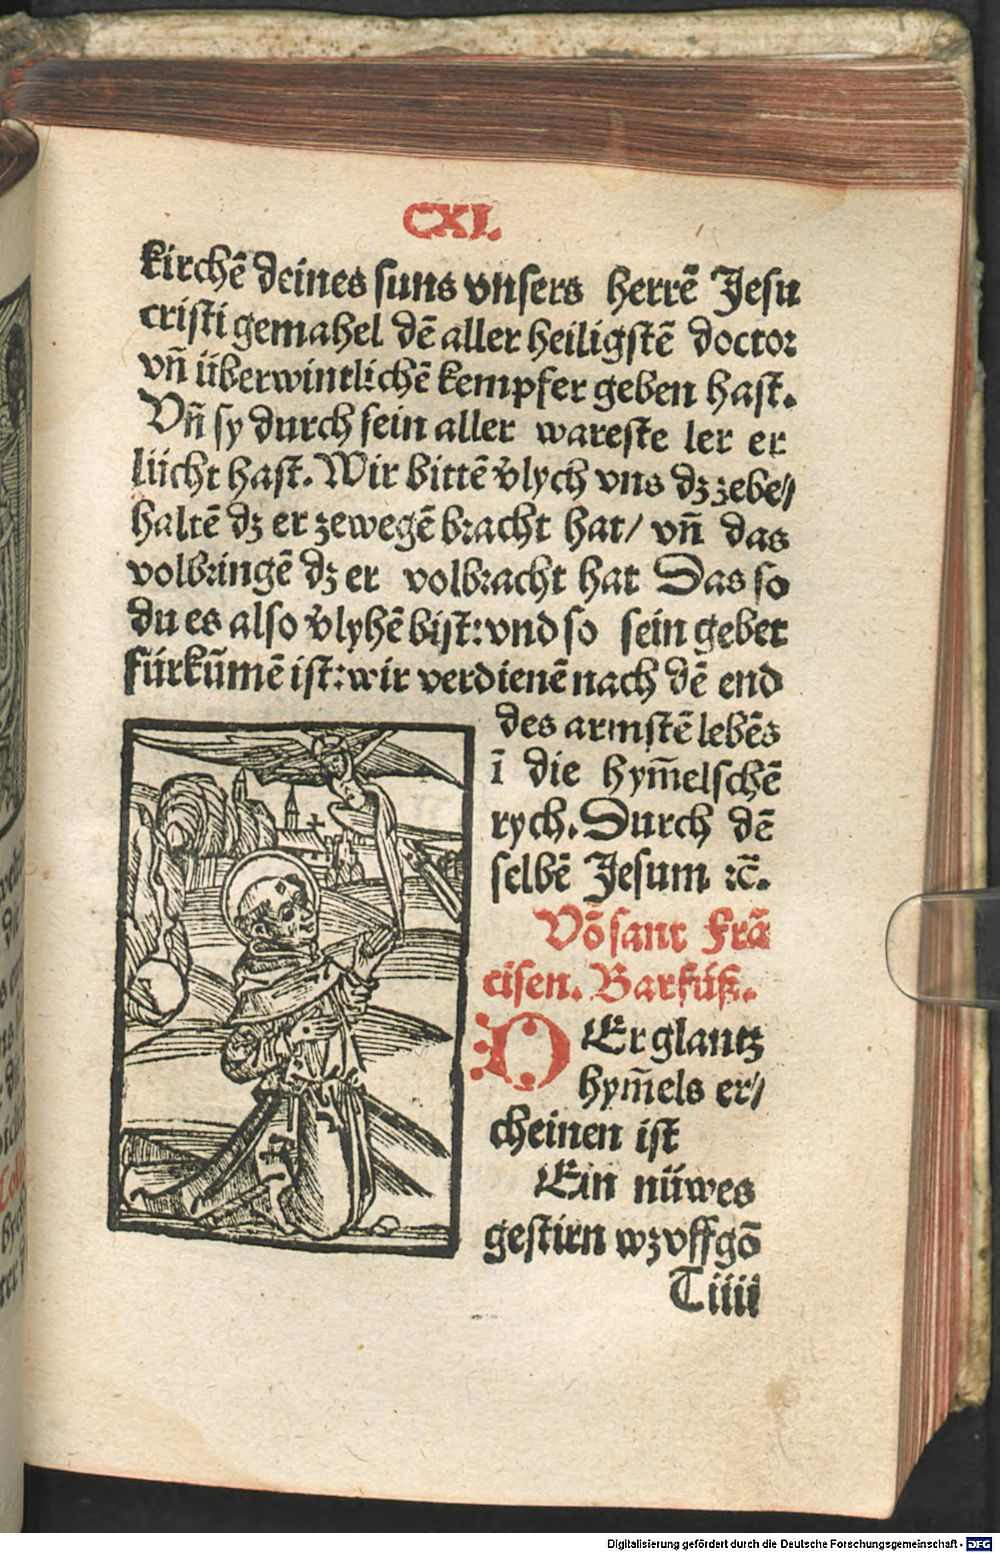 CXI.
kirchē deines suns vnsers herrē Jesu
cristi gemahel dē aller heiligstē doctor
vn̄ überwintlichē kempfer geben hast.
Vn̄ sy durch sein aller wareste ler er
lücht hast. Wir bittē v̉lych vns dz zebe/
haltē dz er zewegē bracht hat/ vn̄ das
volbringē dz er volbracht hat Das so
du es also v̉lyhē bist: vnd so sein gebet
fürkūmē ist: wir verdienē nach dē end
des armstē lebēs
ī die hym̄elschē
rych. Durch dē
selbē Jesum ⁊c̄.
Vō sant Frā
cisen. Barfüß.
DEr glantz
hym̄els er/
cheinen ist
Ein nüwes
gestirn wz vffgō
T iiii
Digitalisierung gefördert durch die Deutsche Forschungsgemeinschaft - DFG